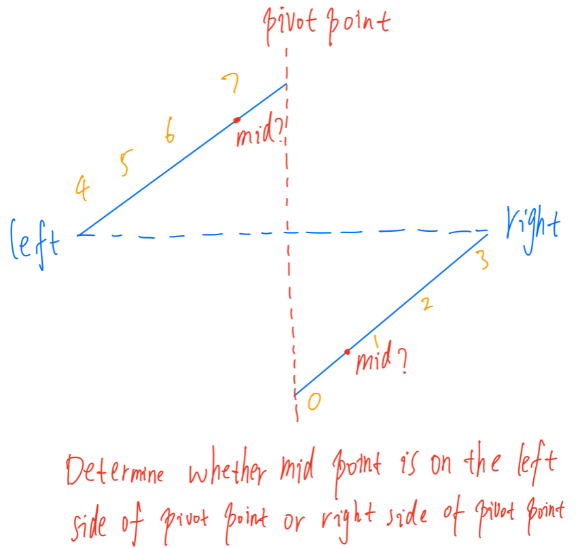 pivot point
7
mid?
6
5
4
left
right
3
2
1
mid?
0
Determine whether mid point is on the left
side of pivot point or right side of pivot point